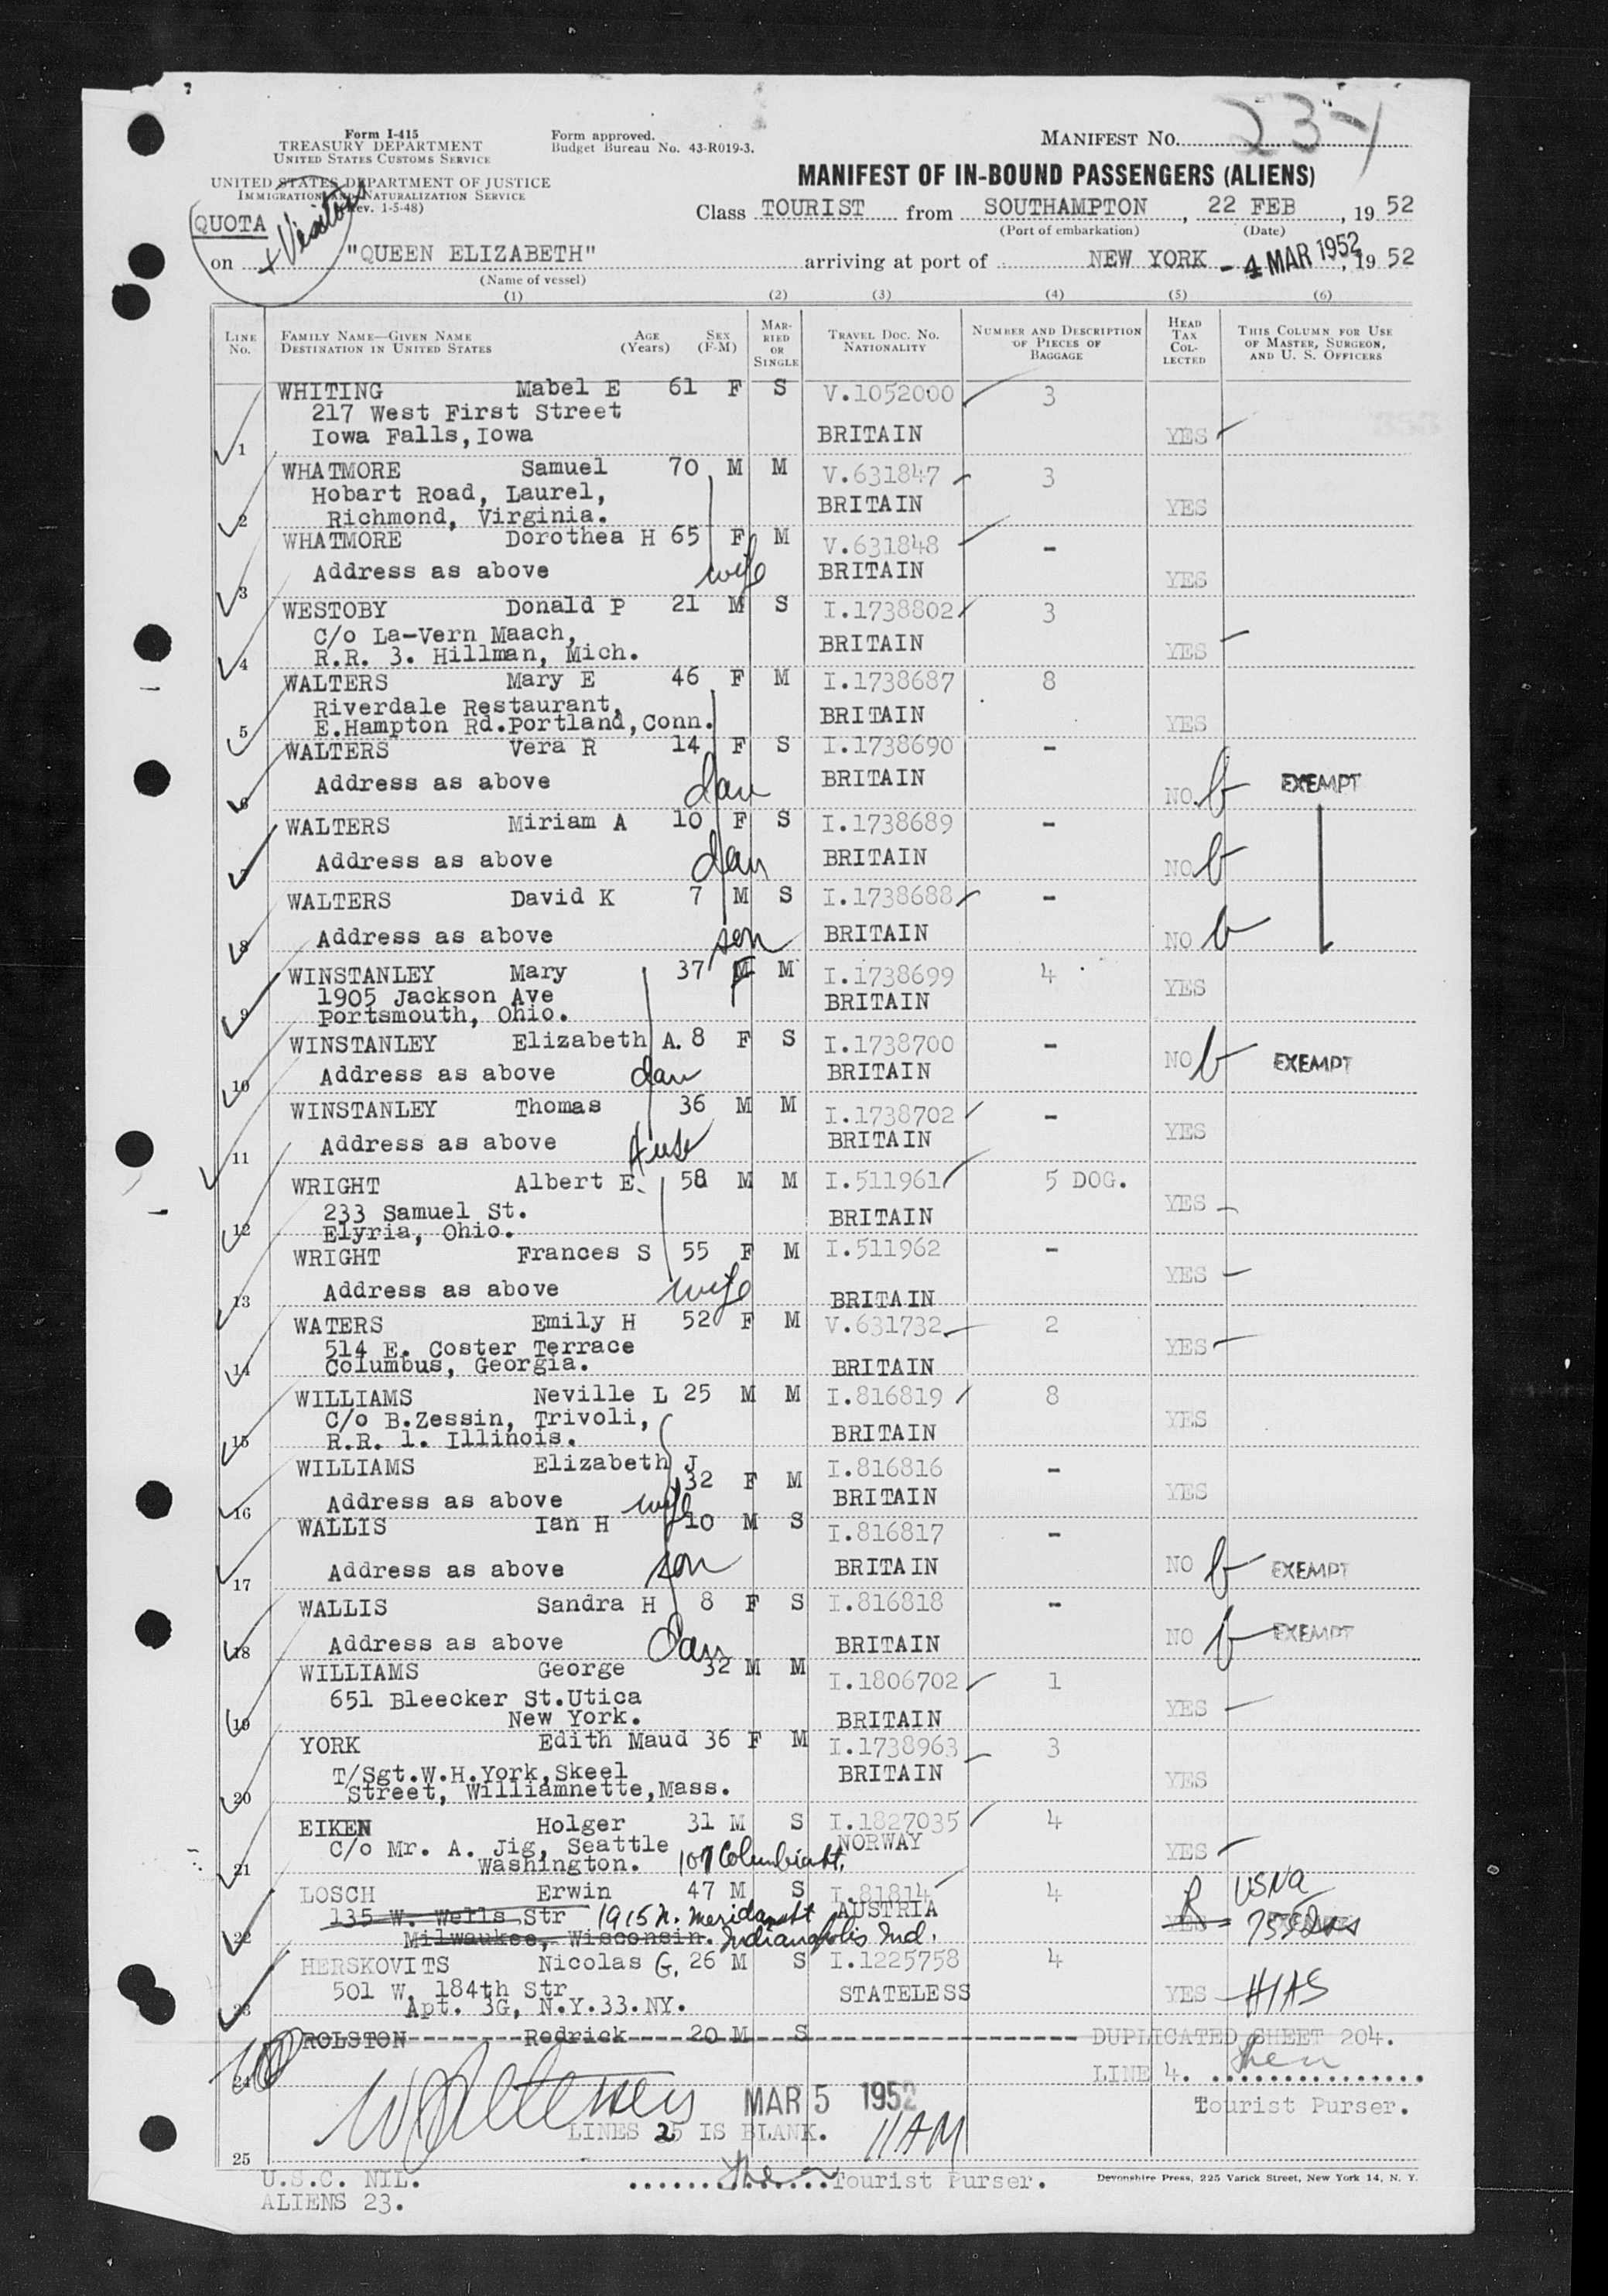 234
Form I-415
TREASURY DEPARTMENT
UNITED STATES CUSTOMS SERVICE
Form approved.
Budget Bureau No. 43-R019-3.
MANIFEST NO.
UNITED STATES DEPARTMENT OF JUSTICE
IMMIGRATION AND NATURALIZATION SERVICE
(Rev. 1-5-48)
MANIFEST OF IN-BOUND PASSENGERS (ALIENS)
QUOTA
+ Visitors
Class TOURIST from SOUTHAMPTON, 22 FEB, 19 52
(Port of embarkation) (Date)
on "QUEEN ELIZABETH" arriving at port of NEW YORK - 4 MAR 1952, 19 52
(Name of vessel)
(1) (2) (3) (4) (5) (6)
LINE No. FAMILY NAME—GIVEN NAME DESTINATION IN UNITED STATES AGE (Years) SEX (F-M) MARRIED OR SINGLE TRAVEL DOC. NO. NATIONALITY NUMBER AND DESCRIPTION OF PIECES OF BAGGAGE HEAD TAX COLLECTED THIS COLUMN FOR USE OF MASTER, SURGEON, AND U. S. OFFICERS
WHITING Mabel E 61 F S V.1052000 3
217 West First Street
1 Iowa Falls, Iowa BRITAIN YES
WHATMORE Samuel 70 M M V.631847 3
Hobart Road, Laurel, BRITAIN
2 Richmond, Virginia. YES
WHATMORE Dorothea H 65 F M V.631848 -
Address as above wife BRITAIN
3 YES
WESTOBY Donald P 21 M S I.1738802 3
C/o La-Vern Maach, BRITAIN
4 R.R. 3. Hillman, Mich. YES
WALTERS Mary E 46 F M I.1738687 8
Riverdale Restaurant, BRITAIN
5 E.Hampton Rd.Portland,Conn. YES
WALTERS Vera R 14 F S I.1738690 -
6 Address as above dau BRITAIN NO b EXEMPT
WALTERS Miriam A 10 F S I.1738689 -
7 Address as above dau BRITAIN NO b
WALTERS David K 7 M S I.1738688 -
8 Address as above son BRITAIN NO b
WINSTANLEY Mary 37 M F M I.1738699 4
1905 Jackson Ave BRITAIN YES
9 Portsmouth, Ohio.
WINSTANLEY Elizabeth A. 8 F S I.1738700 -
10 Address as above dau BRITAIN NO b EXEMPT
WINSTANLEY Thomas 36 M M I.1738702 -
11 Address as above BRITAIN YES
WRIGHT Albert E. 58 M M I.511961 5 DOG.
233 Samuel St. BRITAIN YES
12 Elyria, Ohio.
WRIGHT Frances S 55 F M I.511962 -
13 Address as above wife BRITAIN YES
WATERS Emily H 52 F M V.631732 2
514 E. Coster Terrace YES
14 Columbus, Georgia. BRITAIN
WILLIAMS Neville L 25 M M I.816819 8
C/o B.Zessin, Trivoli, YES
15 R.R. 1. Illinois. BRITAIN
WILLIAMS Elizabeth J 32 F M I.816816 -
16 Address as above wife BRITAIN YES
WALLIS Ian H 10 M S I.816817 -
17 Address as above son BRITAIN NO b EXEMPT
WALLIS Sandra H 8 F S I.816818 -
18 Address as above Dau BRITAIN NO b EXEMPT
WILLIAMS George 32 M M I.1806702 1
651 Bleecker St.Utica YES
19 New York. BRITAIN
YORK Edith Maud 36 F M I.1738963 3
T/Sgt.W.H.York,Skeel BRITAIN
20 Street, Williamnette,Mass. YES
EIKEN Holger 31 M S I.1827035 4
C/o Mr. A. Jig, Seattle NORWAY YES
21 Washington. 107 Columbia St.
LOSCH Erwin 47 M S I.81814 4 R USNA
135 W. Wells Str 1915 N. Meridan St AUSTRIA YES
22 Milwaukee, Wisconsin. Indianapolis Ind.
HERSKOVITS Nicolas G. 26 M S I.1225758 4
501 W. 184th Str STATELESS YES HIAS
23 Apt. 3G, N.Y.33.NY.
ROLSTON Redrick 20 M S DUPLICATED SHEET 204.
24 LINE 4.
Tourist Purser.
MAR 5 1952
LINES 25 IS BLANK. 11 AM
25
U.S.C. NIL. Tourist Purser. Devonshire Press, 225 Varick Street, New York 14, N. Y.
ALIENS 23.